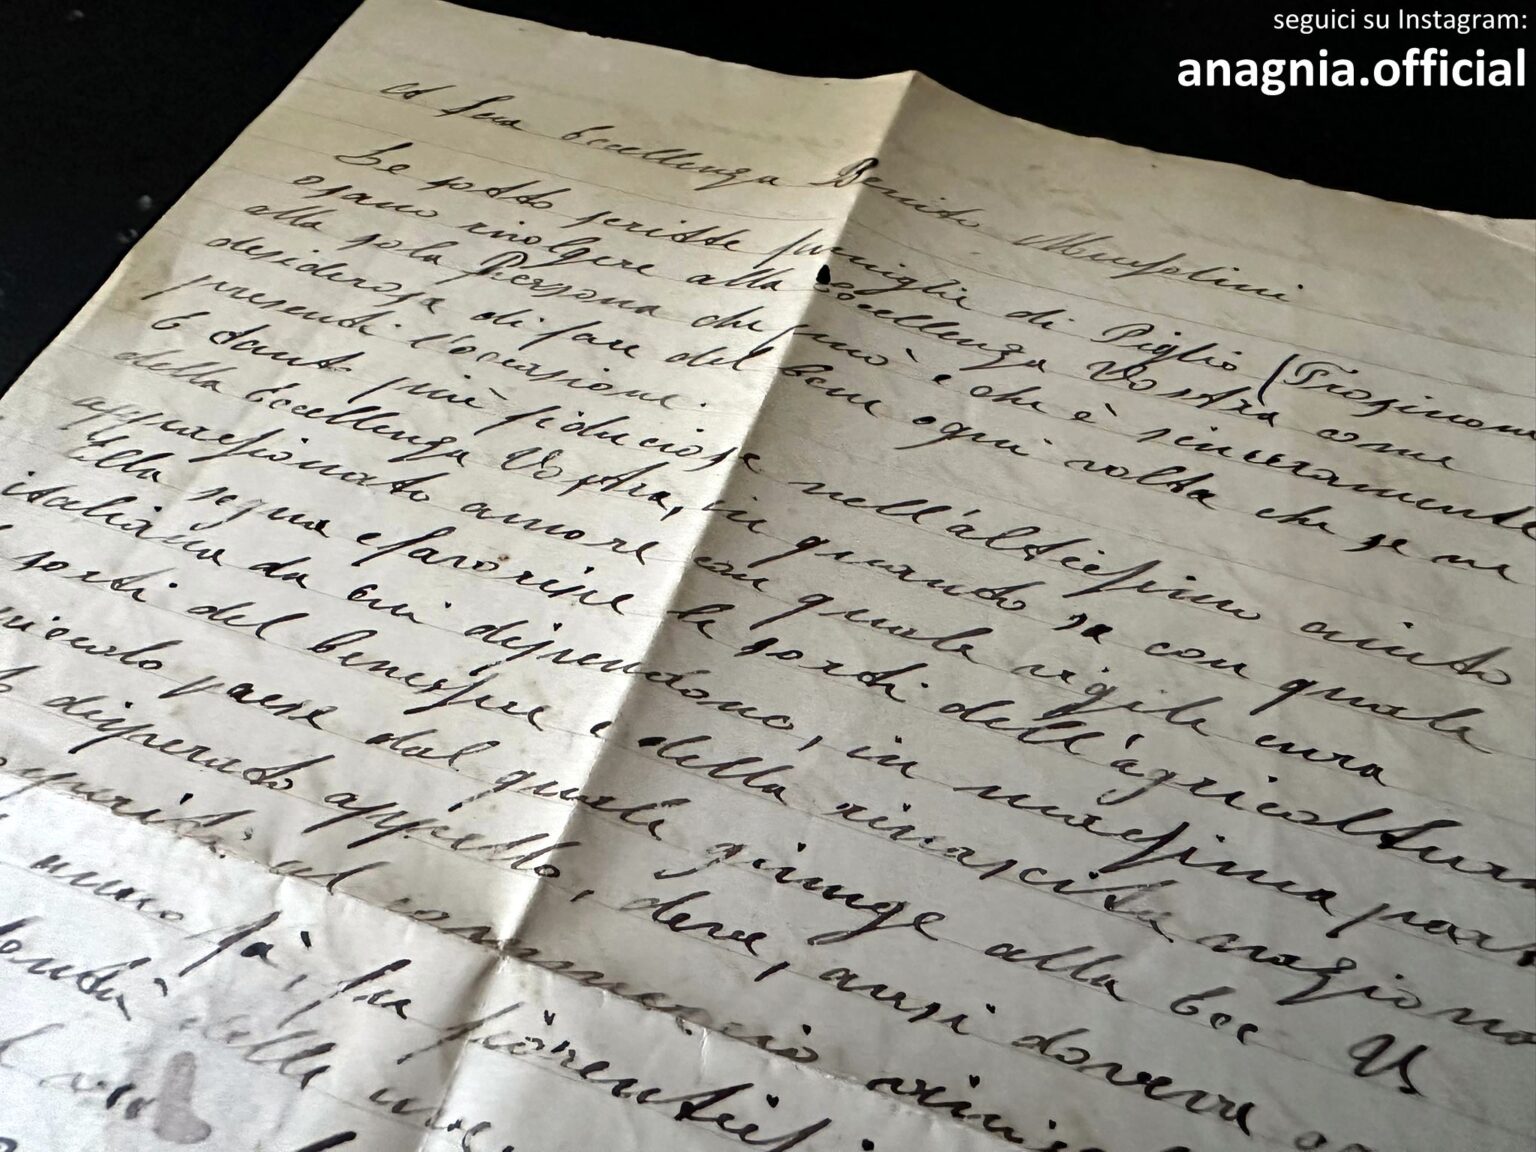 seguici su Instagram:
anagnia.official
A Sua Eccellenza Benito Mussolini
Le sotto scritte famiglie di Piglio (Frosinone
osano rivolgere alla Eccellenza Vostra come
alla sola Persona che può e che è sinceramente
desiderosa di fare del bene ogni volta che se ne
presenti l'occasione.
E tanto più fiduciose nell'altissimo aiuto
della Eccellenza Vostra, in quanto sa con quale
appassionato amore con quale vigile cura
Ella segua e favorisce le sorti dell'agricoltura
italiana da cui dipendono, in massima parte
sorti del benessere e della rinascita naziona
piccolo paese dal quale giunge alla Ecc V
disperato appello, deve, anzi doveva
al commercio
anno fà, fra
delle